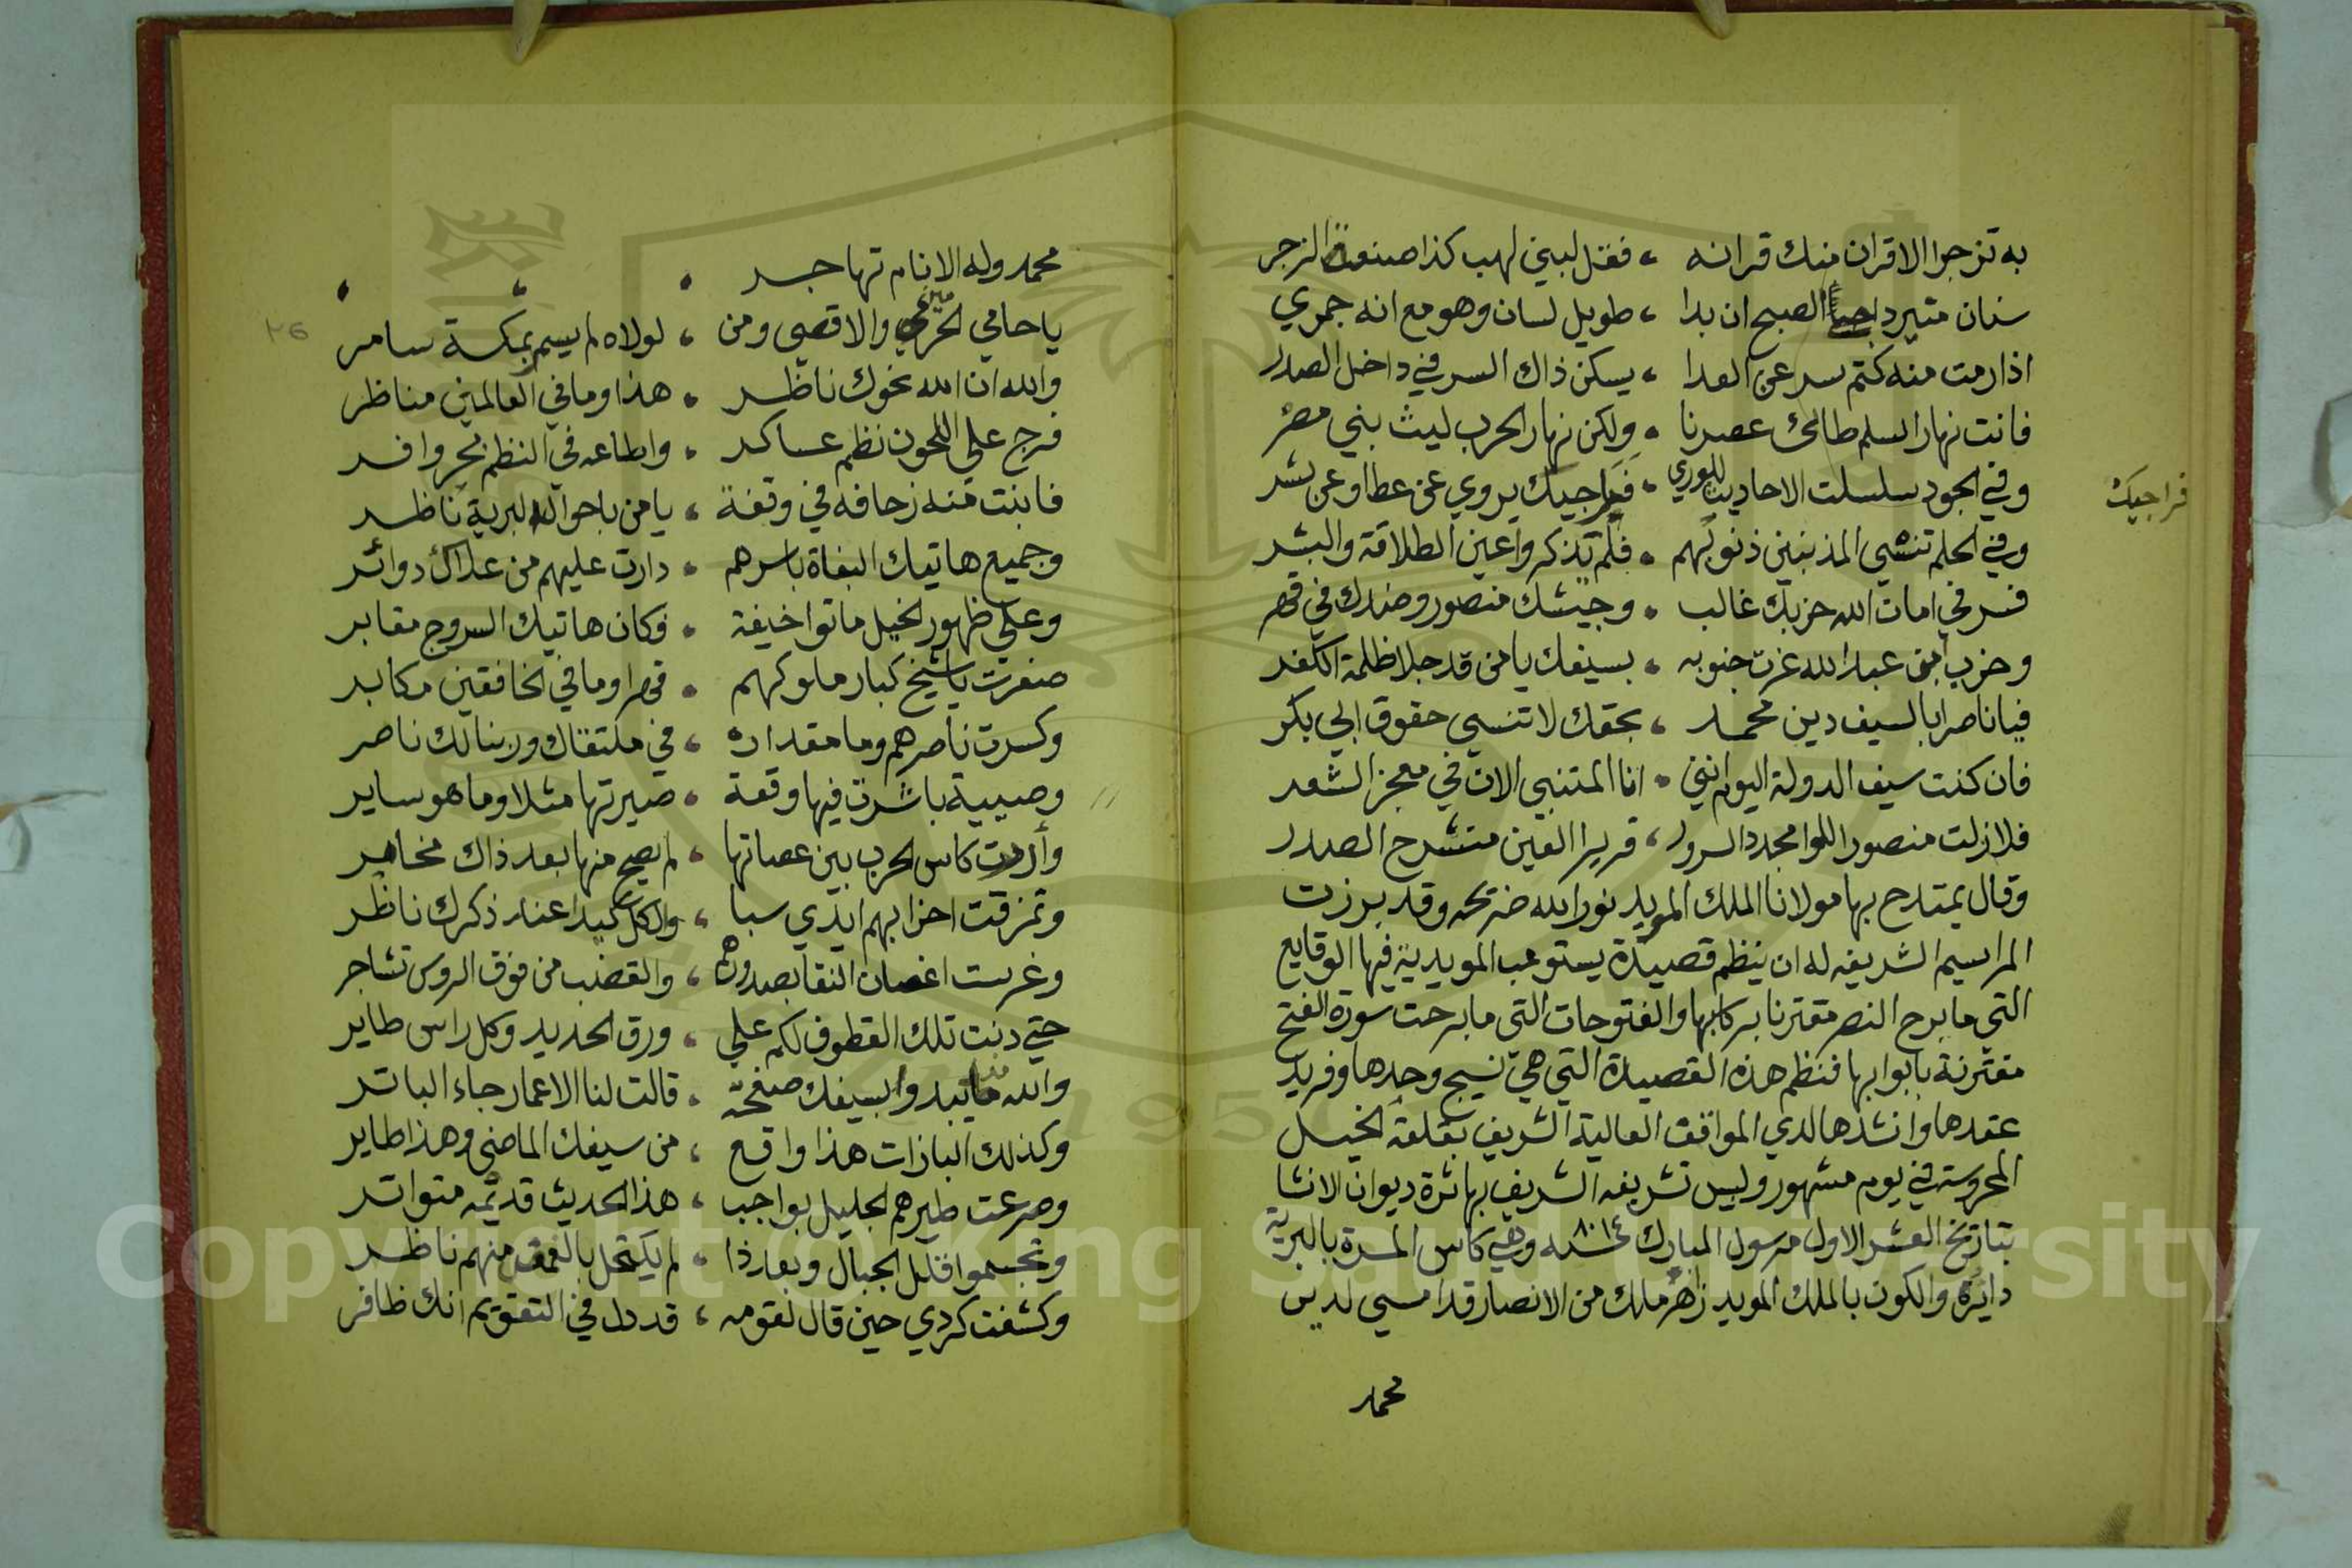 به تزجر الاقران منك قرانه ، فقل لبني لهب كذا صنعة الزجر
سنان منير داجيا الصبح ان بدا ، طويل لسان وهو مع انه جمري
اذا رمت منه كتم سر عن العدا ، يسكن ذاك السر في داخل الصدر
فانت نهار السلم طالك عصرنا ، ولكن نهار الحرب ليث بني مصر
وفي الجود سلسلت الاحاديث للوري ، فراجيك يروي عن عطا وعن بشر
فراجيك
وفي الحلم تنشي المذنبين ذنوبهم ، فلم تذكروا عين الطلاقة والبشر
فسر في امان الله حزبك غالب ، وجيشك منصور وضدك في قهر
وحزب ابن عبد الله عزت جنوبه ، بسيفك يا من قد جلا ظلمة الكفر
فيا ناصرا بالسيف دين محمد ، بحقك لا تنسي حقوق ابي بكر
فان كنت سيف الدولة اليوم انني ، انا المتنبي الان في معجز الشعر
فلا زلت منصور اللوا مجدد السرور ، قرير العين منشرح الصدر
وقال يمتدح بها مولانا الملك المويد نور الله ضريحه وقد برزت
المراسيم الشريفه له ان ينظم قصيدة يستوعب المويدية فيها الوقايع
التي ما برح النصر مقترنا بركابها والفتوحات التي ما برحت سورة الفتح
مقترنة بابوابها فنظم هذه القصيدة التي هي نسيج وحدها وفريد
عقدها وانشدها لدي المواقف العالية الشريف بقلعة الجبل
المحروسة في يوم مشهور ولبس تشريفه الشريف بها ثرة ديوان الانشا
بتاريخ العشر الاول من سول المبارك سنه ٨٠١٤ وهي كاس المسرة بالبرية
دايرة والكون بالملك المويد زاهر ملك من الانصار قد امسي لدين
محمد
محمد وله الانام تهاجر
يا حامي الحرمين والاقصي ومن ، لولاه لم يسمر بمكة سامر
والله ان الله نحوك ناظر ، هذا وما في العالمين مناظر
فرج علي اللجون نظم عساكر ، واطاعه في النظم بحر وافر
فابنت منه زحافه في وقفة ، يا من باحوال البرية ناظر
وجميع هاتيك البغاة باسرهم ، دارت عليهم من علاك دوائر
وعلي ظهور الخيل ماتوا خيفة ، فكان هاتيك السروج مقابر
صغرت يا شيخ كبار ملوكهم ، قهرا وما في الخافقين مكابر
وكسرت ناصرهم وما مقداره ، في ملتقاك وربنا لك ناصر
وصبيبة باشرت فيها وقعة ، صيرتها مثلا وما هو ساير
وأردت كاس الحرب بين عصاتها ، لم يصح منها بعد ذاك مخامر
وتمزقت احزابهم ايدي سبا ، والكل عند ذكرك ناظر
وغرست اغصان النقا بصدورهم ، والقضب من فوق الروس تشاجر
حتي دنت تلك القطوف لكم علي ، ورق الحديد وكل راس طاير
والله ما تبدوا لسيفك صفحة ، قالت لنا الاعمار جاء الباتر
وكذلك البازات هذا واقع ، من سيفك الماضي وهذا طاير
وصرعت طيرهم الجليل بواجب ، هذا الحديث قديمه متواتر
وتجسموا قلل الجبال وبعد ذا ، لم يكتحل بالغمض منهم ناظر
وكشفت كردي حين قال لقومه ، قد دل في التقويم انك ظافر
٢٦
Copyright © King Saud University
1957